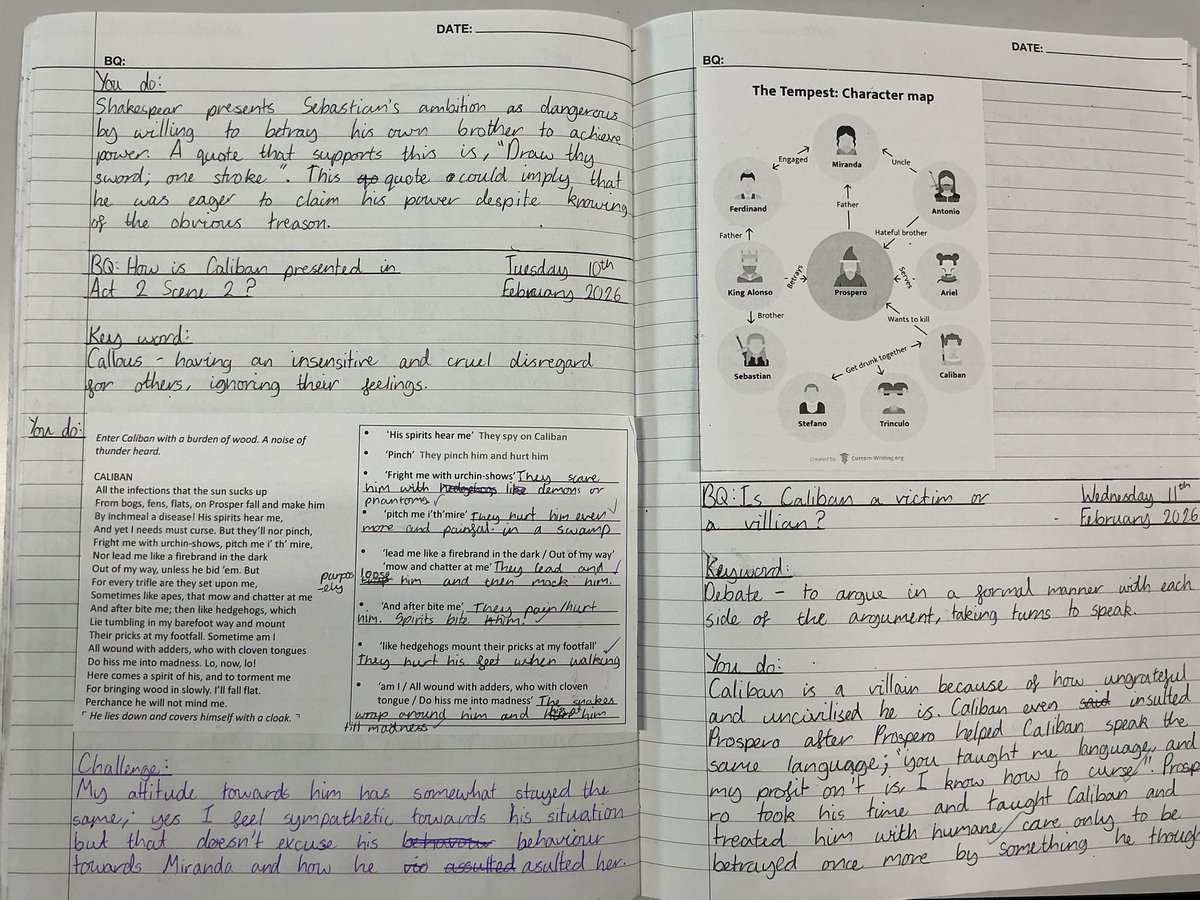 DATE:
BQ:
You do:
Shakespear presents Sebastian's ambition as dangerous
by willing to betray his own brother to achieve
power. A quote that supports this is, "Draw thy
sword; one stroke". This quote could imply that
he was eager to claim his power despite knowing
of the obvious treason.
BQ: How is Caliban presented in
Act 2 Scene 2?
Tuesday 10th
February 2026
Key word:
Callous - having an insensitive and cruel disregard
for others, ignoring their feelings.
You do:
Enter Caliban with a burden of wood. A noise of
thunder heard.
CALIBAN
All the infections that the sun sucks up
From bogs, fens, flats, on Prosper fall and make him
By inchmeal a disease! His spirits hear me,
And yet I needs must curse. But they'll nor pinch,
Fright me with urchin-shows, pitch me i' th' mire,
Nor lead me like a firebrand in the dark
Out of my way, unless he bid 'em. But
For every trifle are they set upon me,
Sometimes like apes, that mow and chatter at me
And after bite me; then like hedgehogs, which
Lie tumbling in my barefoot way and mount
Their pricks at my footfall. Sometime am I
All wound with adders, who with cloven tongues
Do hiss me into madness. Lo, now, lo!
Here comes a spirit of his, and to torment me
For bringing wood in slowly. I'll fall flat.
Perchance he will not mind me.
⌜ He lies down and covers himself with a cloak. ⌝
• 'His spirits hear me' They spy on Caliban
• 'Pinch' They pinch him and hurt him
• 'Fright me with urchin-shows' They scare
him with hedgehogs like demons or
phantoms
• 'pitch me i'th'mire' They hurt him even
more and painful in a swamp
• 'lead me like a firebrand in the dark / Out of my way'
'mow and chatter at me' They lead and
purpos
-ely
loose him and then mock him.
• 'And after bite me' They pain/hurt
him. Spirits bite him.
• 'like hedgehogs mount their pricks at my footfall'
They hurt his feet when walking
• 'am I / All wound with adders, who with cloven
tongue / Do hiss me into madness' The snakes
wrap around him and hiss at him
till madness
Challenge:
My attitude towards him has somewhat stayed the
same; yes I feel sympathetic towards his situation
but that doesn't excuse his behavour behaviour
towards Miranda and how he vio assulted asulted her.
DATE:
BQ:
The Tempest: Character map
Miranda
Engaged
Uncle
Ferdinand
Father
Antonio
Father
Hateful brother
King Alonso
Betrays
Prospero
Serves
Ariel
Brother
Wants to kill
Sebastian
Get drunk together
Caliban
Stefano
Trinculo
Created by Custom-Writing.org
BQ: Is Caliban a victim or
a villian?
Wednesday 11th
February 2026
Keyword:
Debate - to argue in a formal manner with each
side of the argument, taking turns to speak.
You do:
Caliban is a villain because of how ungrateful
and uncivilised he is. Caliban even said insulted
Prospero after Prospero helped Caliban speak the
same language; "you taught me language, and
my profit on't is, I know how to curse". Prosp
ro took his time and taught Caliban and
treated him with humane care only to be
betrayed once more by something he thoug